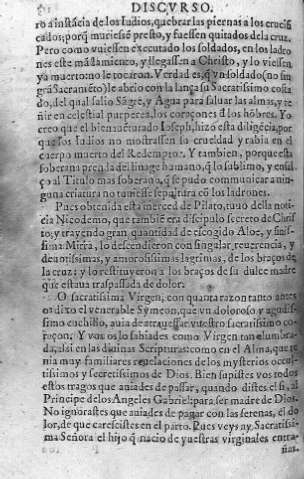 DISCVRSO.
ro a instãcia de los Iudios, quebrar las piernas a los crucifi
cados; porq̃ muriessẽ presto, y fuessen quitados dela cruz.
Pero como vuiessen executado los soldados, en los ladro
nes este mãdamiento, y llegassen a Christo, y lo viessen
ya muerto: no le tocaron. Verdad es, q̃ vn soldado (no sin
grã Sacramẽto) le abrio con la lança su Sacratissimo costa
do, del qual salio Sãgre, y Agua para saluar las almas, y te
ñir en celestial purpurea, los coraçones d̃ los hõbres. Yo
creo que el bienauẽturado Ioseph, hizo esta diligẽcia, por
que los Iudios no mostrassen su crueldad y rabia en el
cuerpo muerto del Redemptor. Y tambien, porque esta
soberana prenda del linage humano, q̃ lo sublimo, y ensal
ço al Titulo mas soberano, q̃ se pudo comunicar a nin
guna criatura no tuuiesse sepultura cõ los ladrones.
Pues obtenida esta merced de Pilato, tuuo della noti
cia Nicodemo, que tambiẽ era discipulo secreto de Chris
to; y trayendo gran quantidad de escogido Aloe, y finis
sima Mirra, lo descendieron con singular reuerencia, y
deuotissimas, y amorosissimas lagrimas, de los braços de
la cruz; y lo restituyeron a los braços de su dulce madre
que estaua traspassada de dolor.
O sacratissima Virgen, con quanta razon tanto antes
os dixo el venerable Symeon, que vn doloroso y agudis
simo cuchillo, auia de atrauessar vuestro sacratissimo co
raçon; Y vos os lo sabiades como Virgen tan alumbra
da, assi en las diuinas Scripturas: como en el Alma, que te
nia muy familiares reuelaciones de los mysterios occul
tissimos y secretissimos de Dios. Bien supistes vos todos
estos tragos que auiades de passar, quando distes el si, al
Principe de los Angeles Gabriel: para ser madre de Dios.
No ignorastes que auiades de pagar con las setenas, el do
lor, de que carecistes en el parto. Pues veys ay, Sacratissi
ma Señora el hijo q̃ nacio de vuestras virginales entra-
ñas.